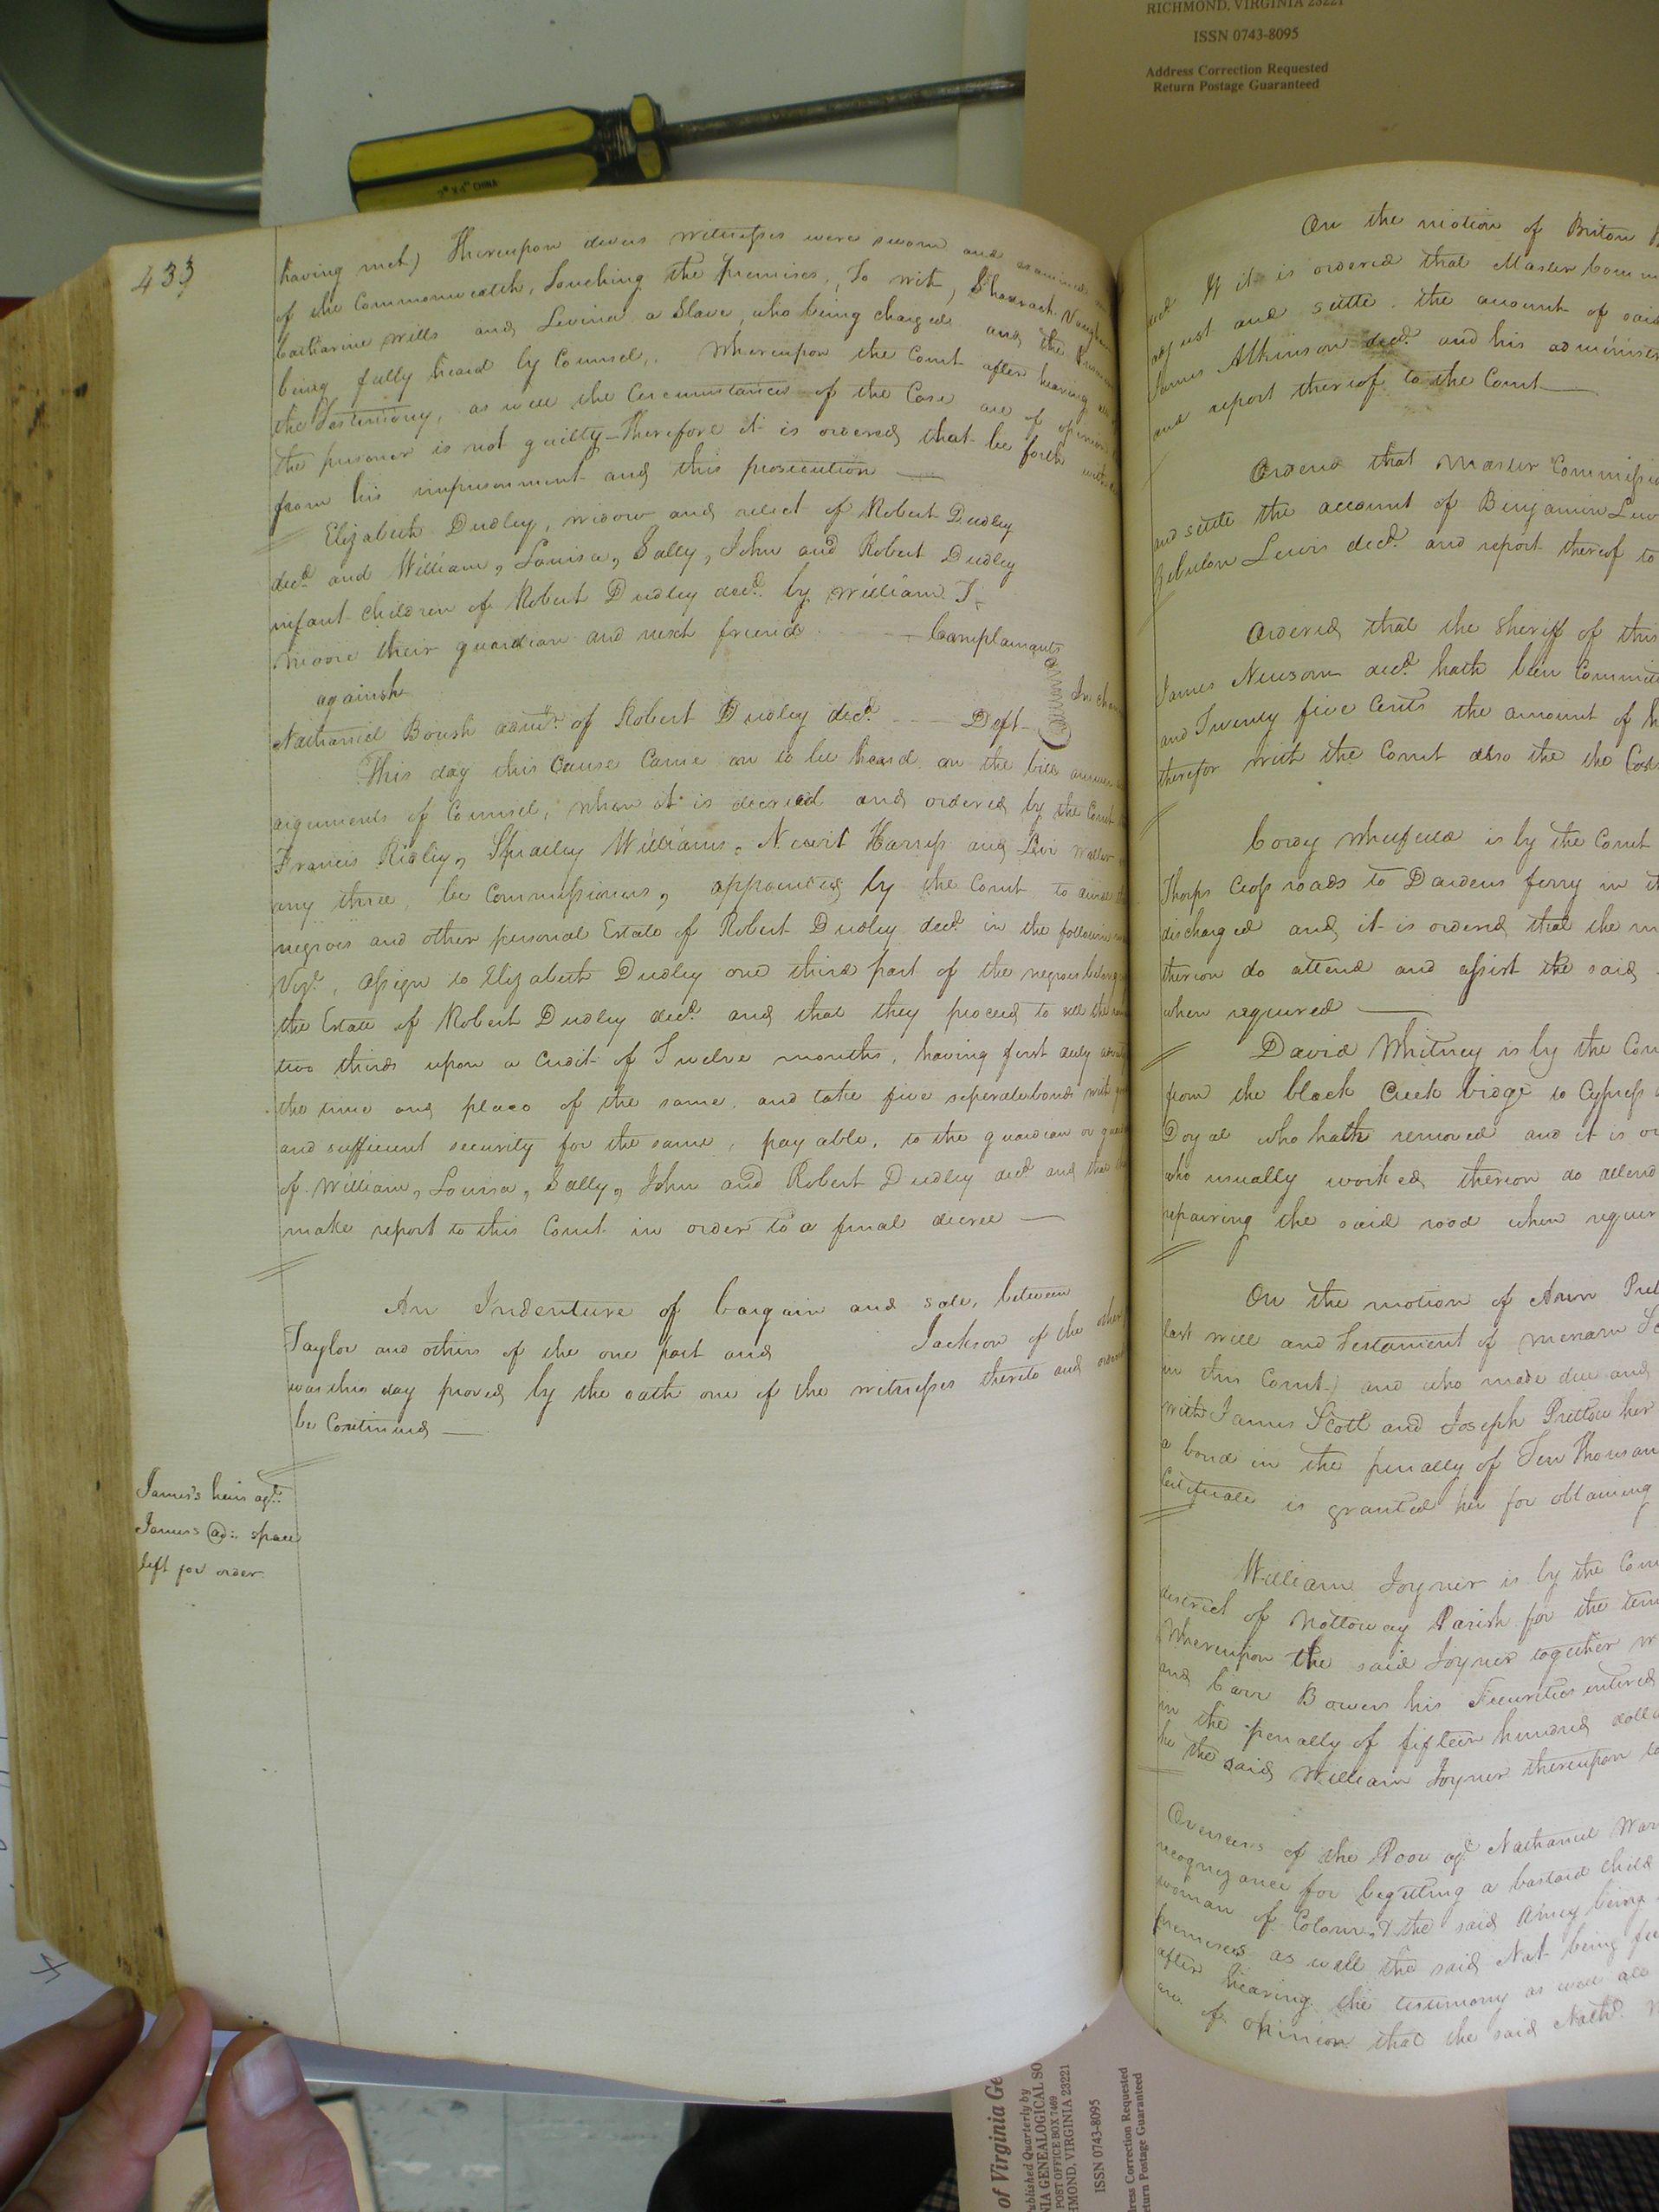 RICHMOND, VIRGINIA 23221
ISSN 0743-8095
Address Correction Requested
Return Postage Guaranteed
7" x 4" CHINA
433
having met) Thereupon divers witnesses were sworn and examined
of the Commonwealth, touching the premises, To wit, Shadrach Vaughan
Catharine Wills and Levina a Slave, who being charged and the Prisoner
being fully heard by Counsel, Whereupon the Court after hearing all
the Testimony, as well the Circumstances of the Case are of opinion
the prisoner is not guilty – Therefore it is ordered that he forthwith
from his imprisonment and this prosecution —
Elizabeth Dudley, widow and relict of Robert Dudley
decd. and William, Louisa, Sally, John and Robert Dudley
infant children of Robert Dudley decd. by William T.
Moore their guardian and next friend - - - Complainants
against
In chan
Nathaniel Boush admr. of Robert Dudley decd. - - - Deft
This day this Cause Came on to be heard on the bill answer
arguments of Counsel, when it is decreed and ordered by the Court
Francis Ridley, Williams, Newit Harris and Levi Waller
any three, be Commissioners, appointed by the Court to
negroes and other personal Estate of Robert Dudley decd. in the following
Vizt, assign to Elizabeth Dudley one third part of the negroes belong
the Estate of Robert Dudley decd. and that they proceed to sell the
two thirds upon a Credit of Twelve months, having first duly
the time and place of the same, and take five seperate bonds with
and sufficient security for the same, payable, to the guardian or
of William, Louisa, Sally, John and Robert Dudley decd. and that
make report to this Court in order to a final decree —
An Indenture of bargain and sale, between
Taylor and others of the one part and Jackson of the other
was this day proved by the oath one of the witnesses thereto and ordered
be Continued —
James's heirs agt.
James ad: space
left for order
On the motion of Briton
decd. It is ordered that Master Comm
adjust and settle the account of said
James Atkinson decd. and his adminis
and report thereof to the Court —
Ordered that Master Commissi
and settle the account of Benjamin Lew
Zebulon Lewis decd. and report thereof to
Ordered that the Sheriff of this
James Newsom decd. hath been Committ
and Twenty five Cents the amount of h
therefor with the Court also the the Cost
Cordy Whitfield is by the Court
Thorps Cross roads to Dardens ferry in
discharged and it is ordered that the
thereon do attend and assist the said
when required —
David Whitney is by the Cour
from the black Creek bridge to Cypress
Doyal who hath removed and it is or
who usually worked thereon do attend
repairing the said road when requir
On the motion of Ann Pret
last will and Testament of Meriam Sc
in this Court) and who made due and
with James Scott and Joseph Pretlow her
a bond in the penalty of Ten Thousan
Certificate is granted her for obtaining
William Joyner is by the Cour
district of Nottoway Parish for the term
Whereupon the said Joyner together w
and Carr Bowers his Securities entered
in the penalty of fifteen hundred dolla
he the said William Joyner thereupon to
Overseers of the Poor agt. Nathaniel War
recognizance for begetting a bastard child
woman of Colour, & the said Amey being
premises as well the said Nat being fu
after hearing the testimony as well as
are of opinion that the said Nathl.
of Virginia Ge
ublished Quarterly by
NIA GENEALOGICAL SO
POST OFFICE BOX 7469
HMOND, VIRGINIA 23221
ISSN 0743-8095
ress Correction Requested
eturn Postage Guaranteed